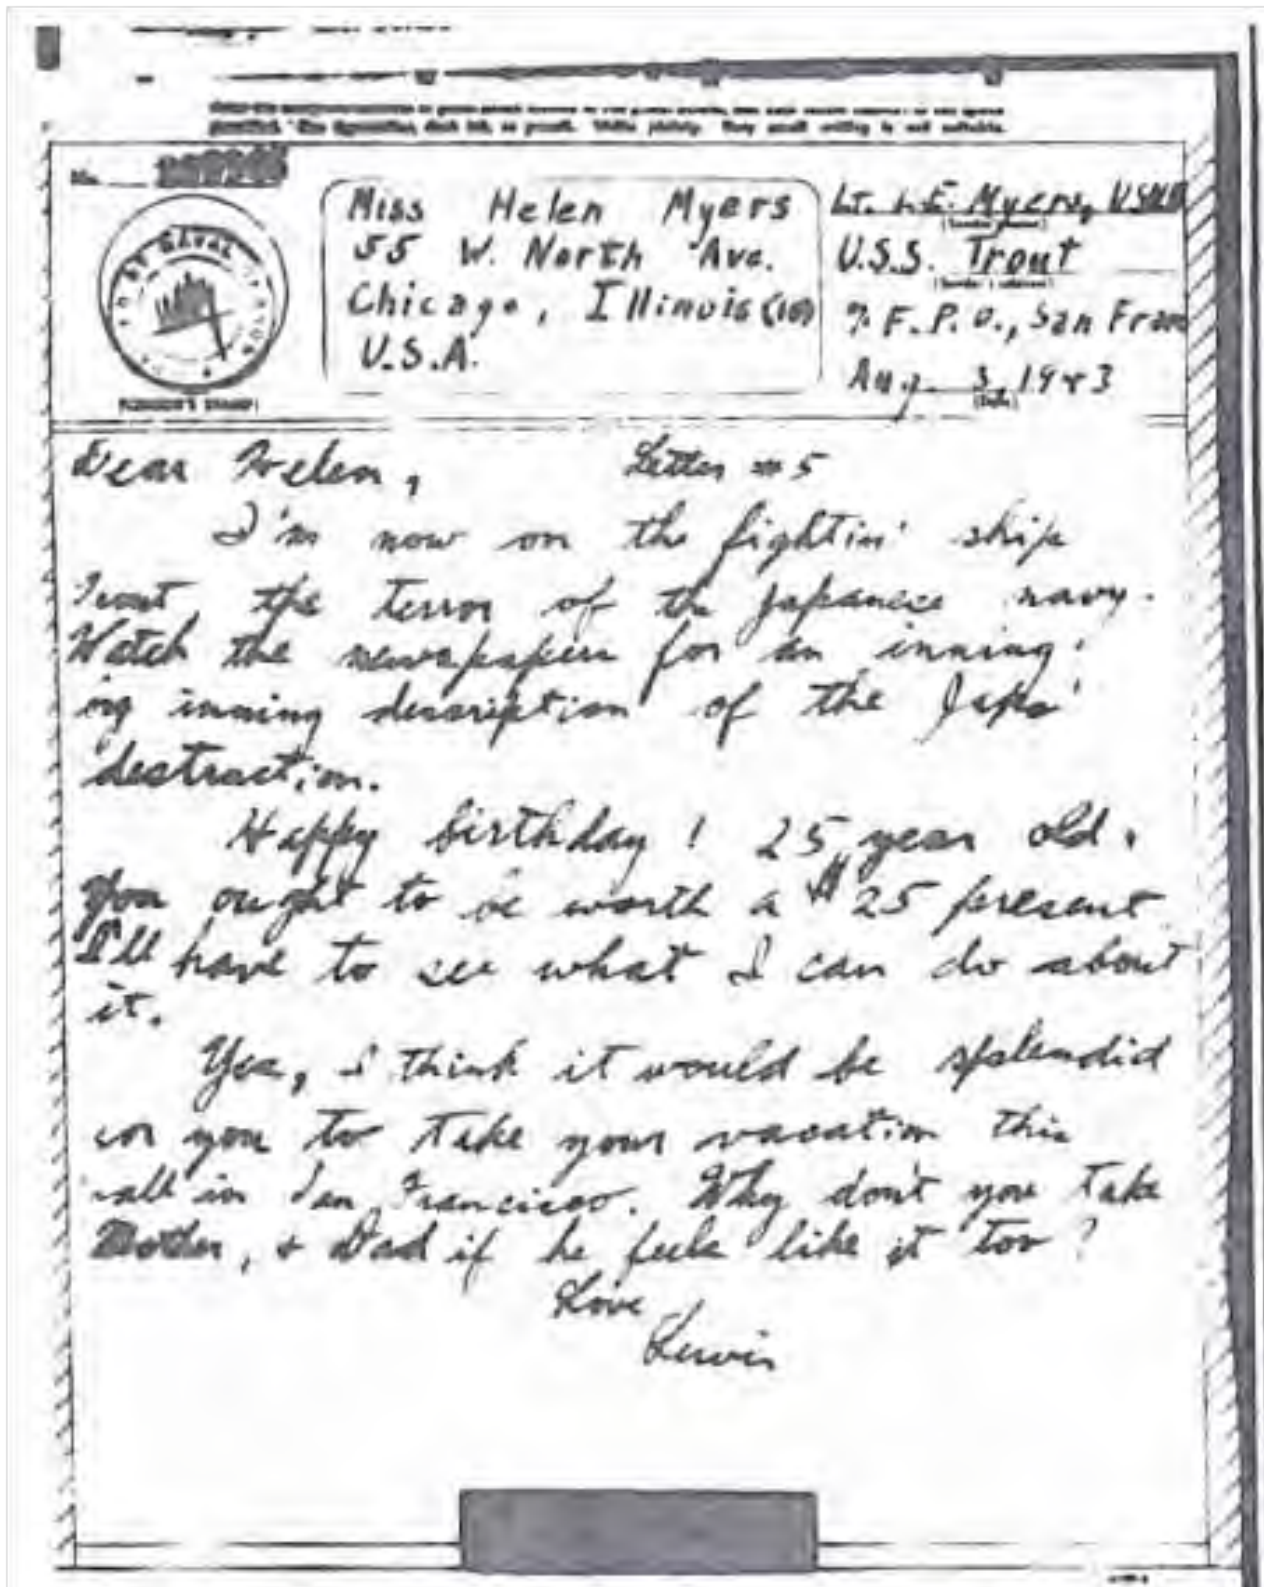 No.
Miss Helen Myers
55 W. North Ave.
Chicago, Illinois (10)
U.S.A.
Lt. L.E. Myers, USNR
U.S.S. Trout
% F.P.O., San Fran
Aug. 3, 1943
(Date)
NAVAL
CENSOR'S STAMP
Dear Helen,
Letter #5
I'm now on the fightin' ship
Trout, the terror of the Japanese navy.
Watch the newspapers for an inning
by inning description of the Japs'
destruction.
Happy birthday! 25 year old.
You ought to be worth a $25 present
I'll have to see what I can do about
it.
Yes, I think it would be splendid
for you to take your vacation this
fall in San Francisco. Why don't you take
Mother, & Dad if he feels like it too?
Love,
Lewis